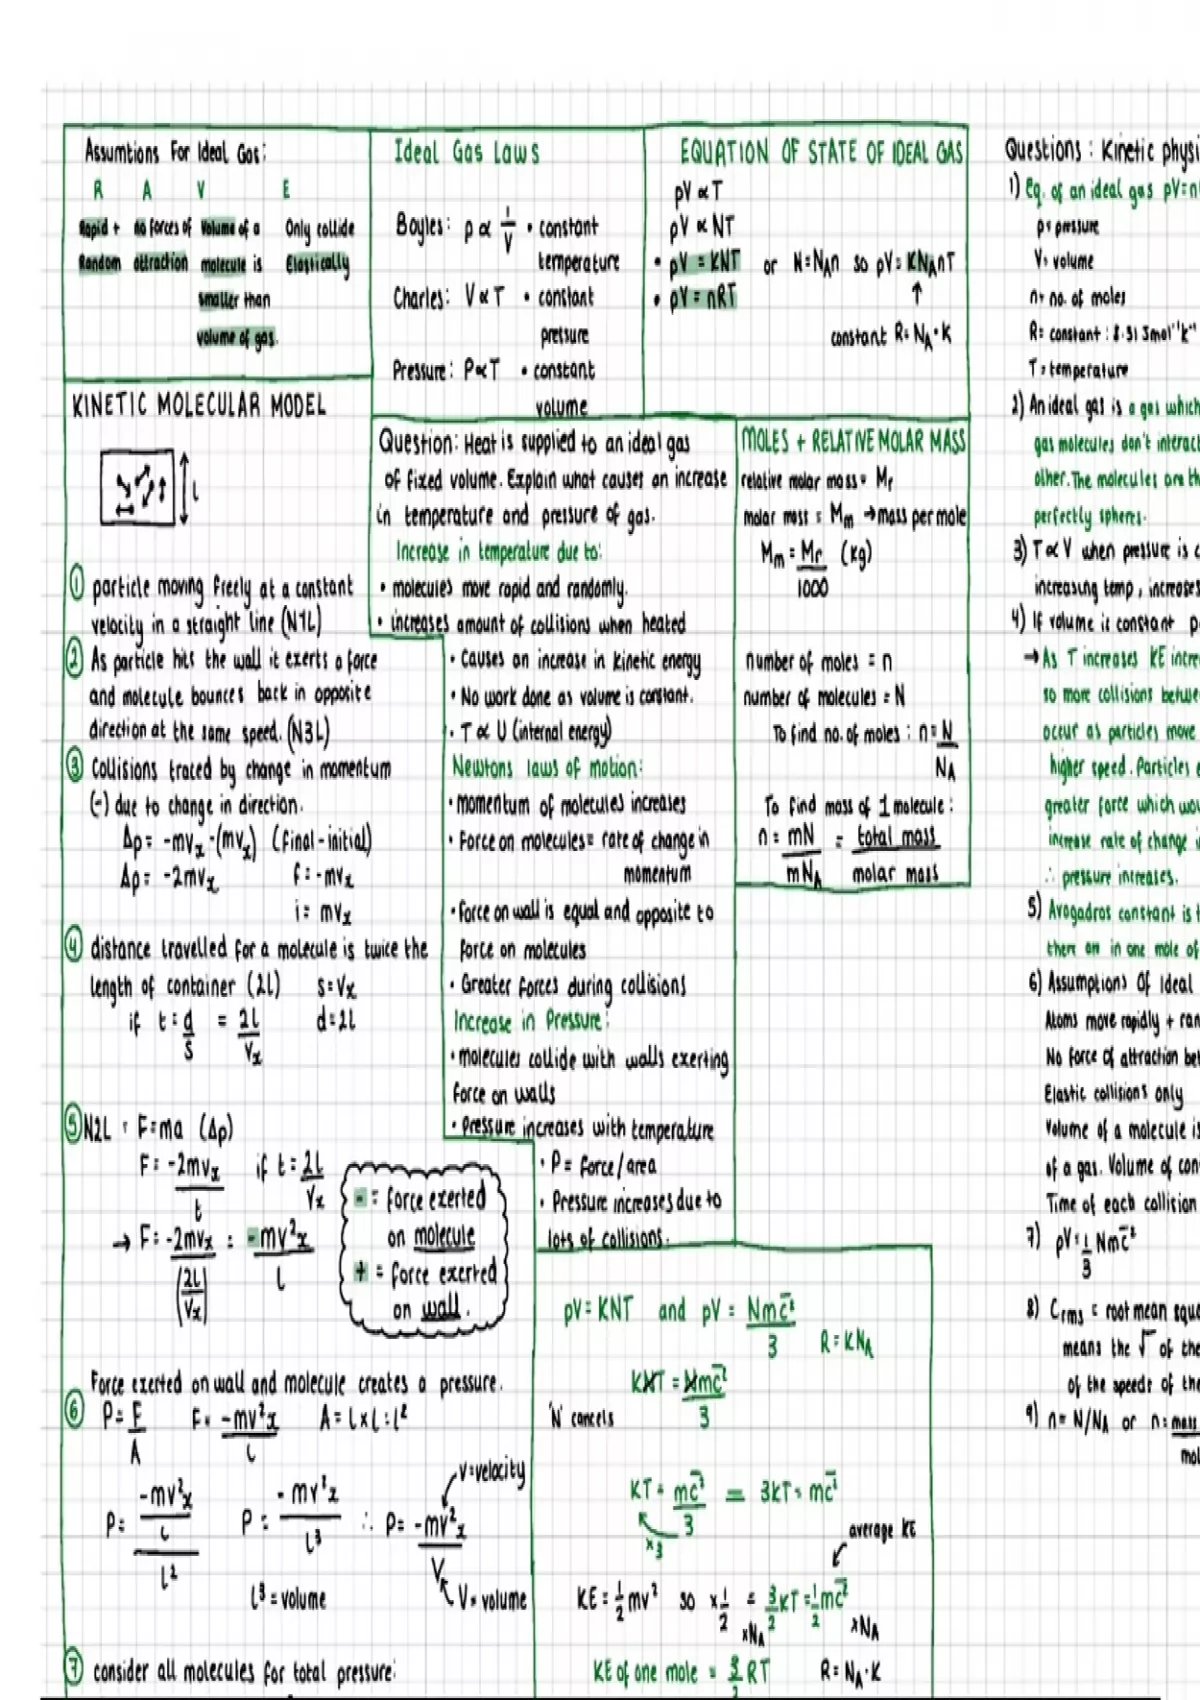 Assumtions For Ideal Gas:
R A V E
Rapid + no forces of Volume of a Only collide
Random attraction molecule is Elastically
smaller than
volume of gas.
Ideal Gas Laws
Boyles: p ∝ 1/V • constant
temperature
Charles: V ∝ T • constant
pressure
Pressure: P ∝ T • constant
volume
EQUATION OF STATE OF IDEAL GAS
pV ∝ T
pV ∝ NT
• pV = KNT or N = NAn so pV = KNAnT
• pV = nRT ↑
constant R = NA·K
KINETIC MOLECULAR MODEL
l
① particle moving freely at a constant
velocity in a straight line (N1L)
② As particle hits the wall it exerts a force
and molecule bounces back in opposite
direction at the same speed. (N3L)
③ Collisions traced by change in momentum
(-) due to change in direction.
Δp = -mvx -(mvx) (final - initial)
Δp = -2mvx f = -mvx
i = mvx
④ distance travelled for a molecule is twice the
length of container (2L) s = vx
if t = d/s = 2L/vx d = 2L
⑤ N2L : F = ma (Δp)
F = -2mvx/t if t = 2L/vx
→ F = -2mvx/(2L/vx) = -mv²x/L
- = force exerted
on molecule
+ = force exerted
on wall.
Force exerted on wall and molecule creates a pressure.
⑥ P = F/A F = -mv²x/L A = L x L = L²
P = (-mv²x/L)/L² P = -mv²x/L³ ∴ P = -mv²x/V
v = velocity
L³ = volume V = volume
⑦ consider all molecules for total pressure:
Question: Heat is supplied to an ideal gas
of fixed volume. Explain what causes an increase
in temperature and pressure of gas.
Increase in temperature due to:
• molecules move rapid and randomly.
• increases amount of collisions when heated
• Causes an increase in kinetic energy
• No work done as volume is constant.
• T ∝ U (internal energy)
Newtons laws of motion:
• momentum of molecules increases
• Force on molecules = rate of change in
momentum
• Force on wall is equal and opposite to
force on molecules
• Greater forces during collisions
Increase in Pressure:
• molecules collide with walls exerting
force on walls
• Pressure increases with temperature
• P = force/area
• Pressure increases due to
lots of collisions.
MOLES + RELATIVE MOLAR MASS
relative molar mass = Mr
molar mass = Mm → mass per mole
Mm = Mr/1000 (kg)
number of moles = n
number of molecules = N
To find no. of moles : n = N/NA
To find mass of 1 molecule :
n = mN/mNA = total mass/molar mass
pV = KNT and pV = Nmc̄²/3
R = KNA
KNT = Nmc̄²/3
'N' cancels
KT = mc̄²/3 = 3KT = mc̄²
x3
average KE
KE = ½mv² so x½ = 3/2KT = ½mc̄²
xNA xNA
KE of one mole = 3/2 RT R = NA·K
Questions : Kinetic physi
1) Eq. of an ideal gas pV=n
p = pressure
V = volume
n = no. of moles
R = constant : 8.31 Jmol⁻¹K⁻¹
T = temperature
2) An ideal gas is a gas which
gas molecules don't interact
other. The molecules are th
perfectly spheres.
3) T ∝ V when pressure is c
increasing temp, increases
4) If volume is constant p
→ As T increases KE incre
so more collisions betwe
occur as particles move
higher speed. Particles e
greater force which wou
increase rate of change i
∴ pressure increases.
5) Avogadros constant is t
there are in one mole of
6) Assumptions Of Ideal
Atoms move rapidly + ran
No force of attraction bet
Elastic collisions only
Volume of a molecule is
of a gas. Volume of con
Time of each collision
7) pV = 1/3 Nmc̄²
8) Crms = root mean squa
means the √ of the
of the speeds of the
9) n = N/NA or n = mass
mol